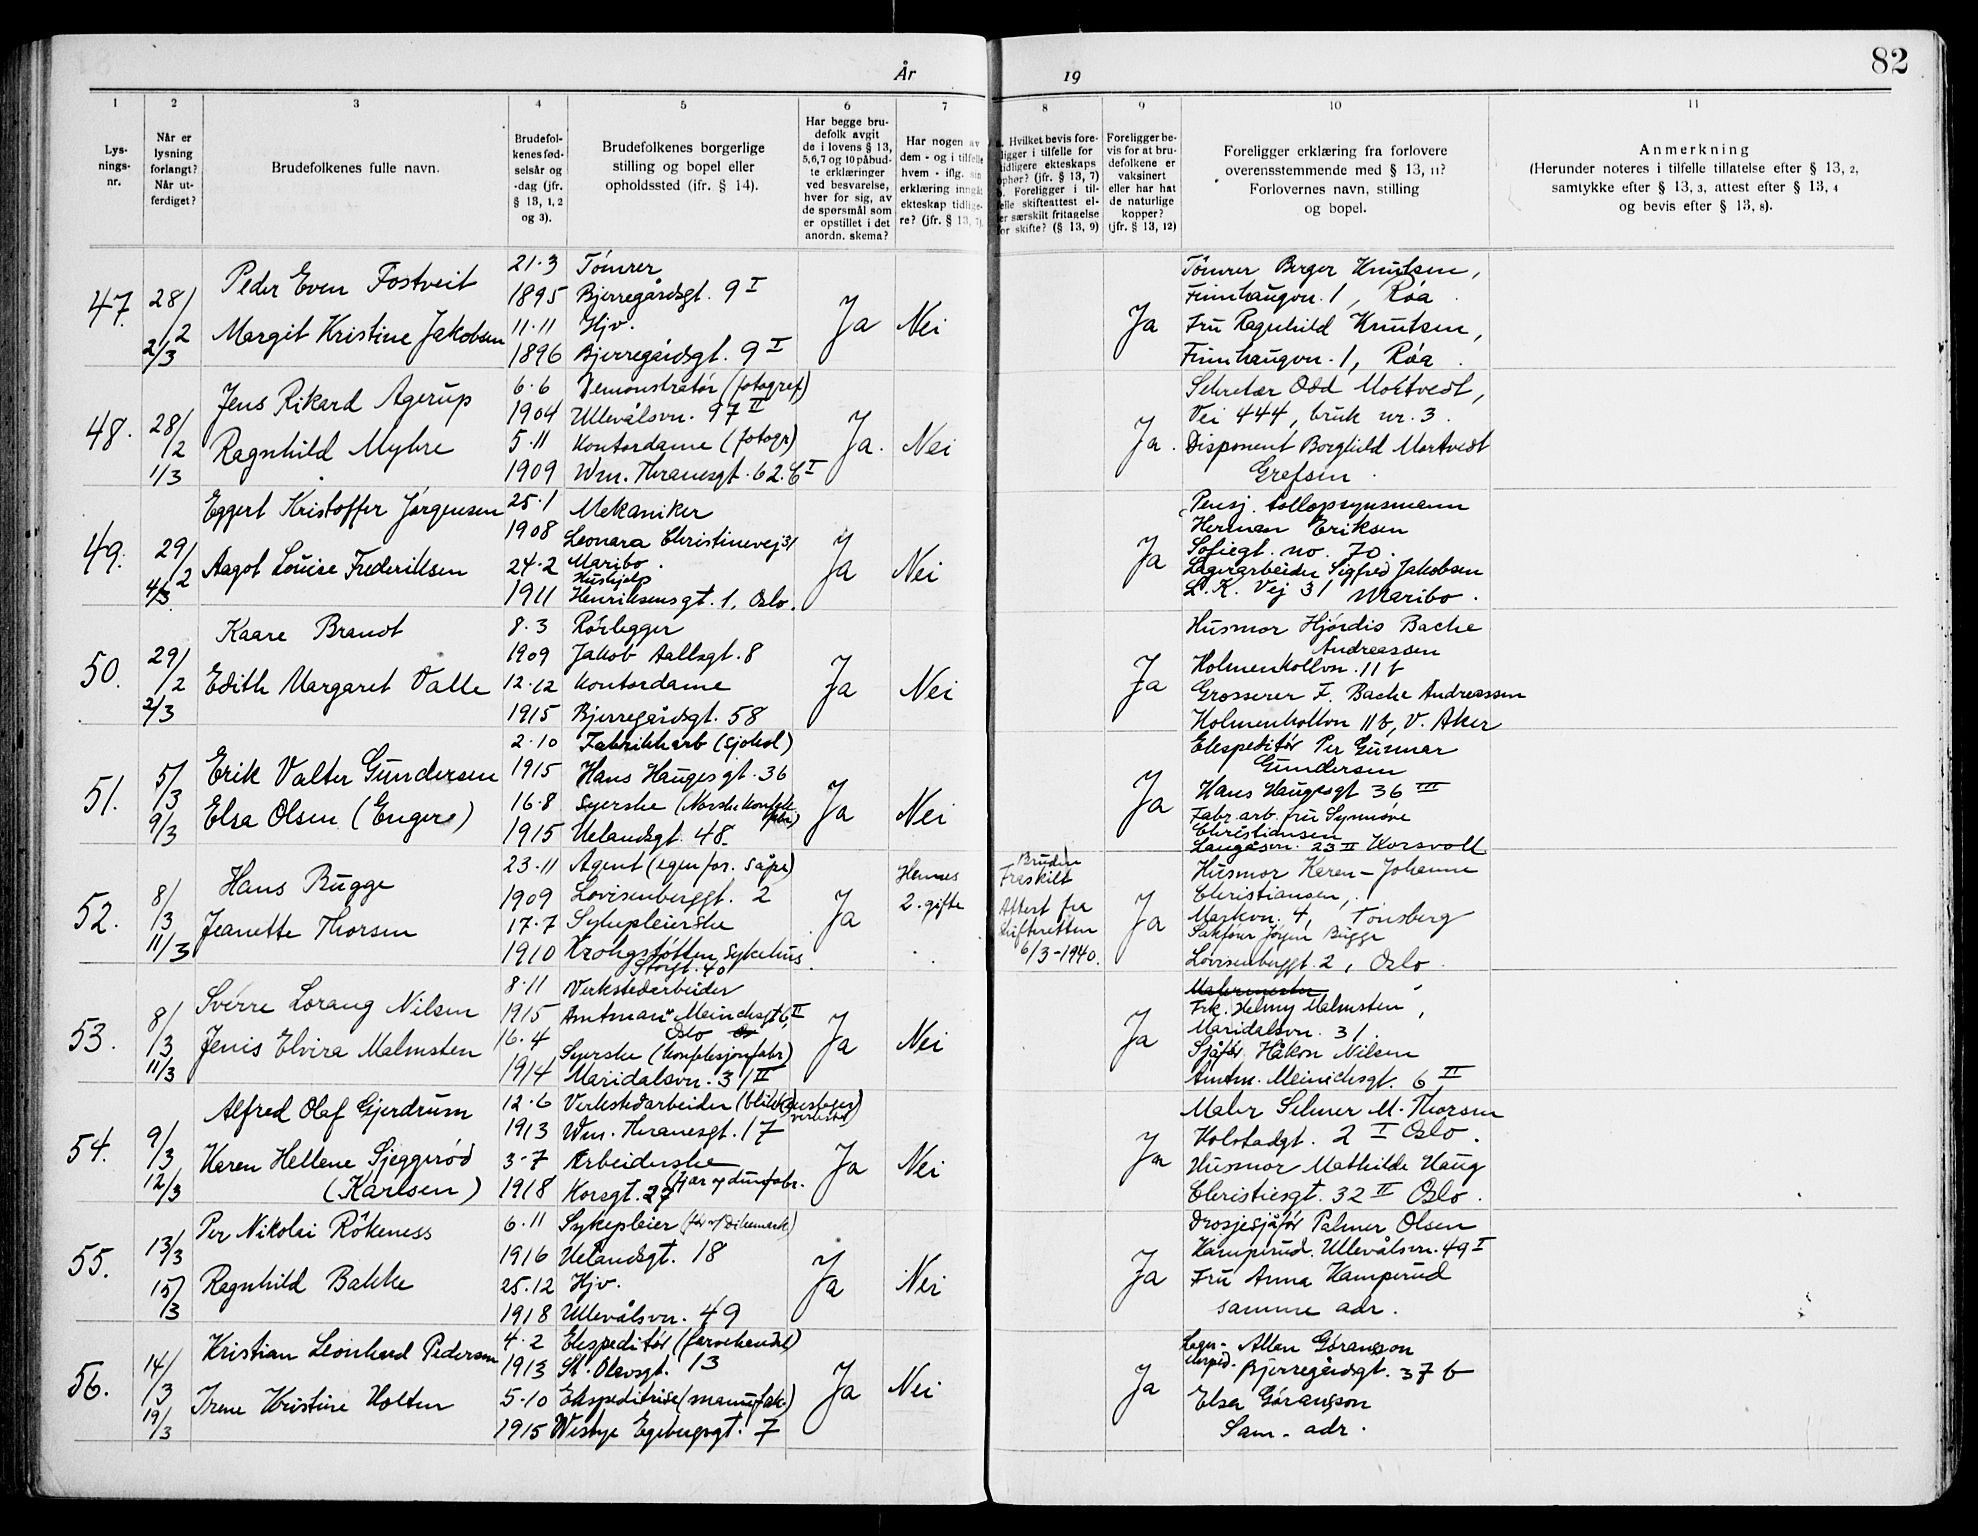 82
År
19
1
2
3
4
5
6
7
8
9
10
11
Lys-
nings-
nr.
Når er
lysning
forlangt?
Når ut-
ferdiget?
Brudefolkenes fulle navn.
Brudefol-
kenes fød-
selsår og
-dag (jfr.
§ 13, 1, 2
og 3).
Brudefolkenes borgerlige
stilling og bopel eller
opholdssted (jfr. § 14).
Har begge bru-
defolk avgit
de i lovens § 13,
5,6,7 og 10 påbud-
te erklæringer
ved besvarelse,
hver for sig, av
de spørsmål som
er opstillet i det
anordn. skema?
Har nogen av
dem - og i tilfelle
hvem - iflg. sin
erklæring inngåt
ekteskap tidlige-
re? (jfr. § 13, 7).
a. Hvilket bevis fore-
ligger i tilfelle for
tidligere ekteskaps
ophør? (jfr. § 13, 7)
b. Foreligger i til-
felle skifteattest el-
ler særskilt fritagelse
for skifte? (§ 13, 9)
Foreligger be-
vis for at bru-
defolkene er
vaksinert
eller har hat
de naturlige
kopper?
(jfr. § 13, 12)
Foreligger erklæring fra forlovere
overensstemmende med § 13, 11?
Forlovernes navn, stilling
og bopel.
Anmerkning
(Herunder noteres i tilfelle tillatelse efter § 13, 2,
samtykke efter § 13, 3, attest efter § 13, 4
og bevis efter § 13, 8).
47.
28/2
2/3
Peder Even Fostveit
Margit Kristine Jakobsen
21.3
1895
11.11
1896
Tömrer
Bjerregårdsgt. 9 I
Hjv.
Bjerregårdsgt. 9 I
Ja
Nei
Ja
Tömrer Berger Knutsen,
Finnhaugvn. 1, Röa.
Fru Ragnhild Knutsen,
Finnhaugvn. 1, Röa.
48.
28/2
1/3
Jens Rikard Agerup
Ragnhild Myhre
6.6
1904
5.11
1909
Demonstratör (fotogref)
Ullevålsvn. 97 II
Kontordame (fotogr)
Wm. Thranesgt. 62. I
Ja.
Nei
Ja.
Sekretær Odd Mortvedt,
Vei 444, bruk nr. 3.
Disponent Borghild Mortvedt
Grefsen.
49.
29/2
4/3.
Eggert Kristoffer Jørgensen
Aagot Louise Frederiksen
25.1
1908
24.2
1911
Mekaniker
Leonara Christinevej 31
Maribo.
Hushjelp
Henriksensgt. 1, Oslo.
Ja
Nei
Ja
Pensj. tollopsynsmann
Herman Eriksen
Sofiegt. no. 70.
Lagerarbeider Sigfred Jakobsen
L. K. Vej 31 Maribo.
50.
29/2
2/3
Kaare Brandt
Edith Margaret Valle
8.3
1909
12.12
1915
Rörlegger
Jakob Aallsgt. 8
Kontordame
Bjerregårdsgt. 58
Ja
Nei
Ja
Husmor Hjördis Bache
Andreassen
Holmenkollvn. 11 b
Grosserer F. Bache Andreassen
Holmenkollvn 11b, V. Aker
51.
5/3
9/3
Erik Valter Gundersen
Elsa Olsen (Engere)
2.10
1915
16.8
1915
Fabrikkarb (sjokol)
Hans Haugesgt. 36
Syerske (Norske konfek fabr)
Uelandsgt. 48.
Ja
Nei
Ja
Ekspeditör Per Gunnar
Gundersen
Hans Haugesgt 36 III
Fabr. arb. fru Synnöve
Christiansen
Langåsvn. 23 II Korsvoll
52.
8/3
11/3
Hans Bugge
Jeanette Thorsen
23.11
1909
17.7
1910
Agent (egen for. såpe)
Lovisenberggt. 2
Sykepleierske
Krohgstötten Sykehus
Storgt. 40
Ja
Hennes
2. gifte
Bruden
Fraskilt
Attest fra
skifteretten
6/3-1940.
Ja
Husmor Karen-Johanne
Christiansen,
Markvn. 4, Tönsberg
Sakförer Jörgen Bugge
Lovisenberggt. 2, Oslo.
53.
8/3
11/3
Sverre Lorang Nilsen
Jenis Elvira Malmsten
8.11
1915
16.4
1914
Verkstedarbeider
Amtman Meinichsgt 6, II
Oslo
Syerske (konfeksjonfabr)
Maridalsvn. 31 II
Ja
Nei
Ja
Malermester
Frk. Helmy Malmsten,
Maridalsvn. 31.
Sjåför Håkon Nilsen
Amtm. Meinichsgt. 6 II
54.
9/3
12/3
Alfred Olaf Gjerdrum
Karen Hellene Sjeggeröd
(Karlsen)
12.6
1913
3.7
1918
Verkstedarbeider
Wm. Thranesgt. 17
Arbeiderske
fjær og dunfabr.
Korsgt. 27
Ja
Nei
Ja
Maler Selmer M. Thorsen
Kolstadgt. 2 I Oslo.
Husmor Mathilde Haug
Christiesgt. 32 II Oslo.
55.
13/3
15/3
Per Nikolai Rökeness
Ragnhild Bakke
6.11
1916
25.12
1918
Sykepleier
Uelandsgt. 18
Hjv.
Ullevålsvn. 49
Ja
Nei
Ja
Drosjesjåför Palmer Olsen
Kamperud. Ullevålsvn. 49 I
Fru Anna Kamperud
samme adr.
56.
14/3
19/3
Kristian Leonhard Pedersen
Irene Kristine Holten
4.2
1913
5.10
1915
Ekspeditör (farvehandel)
St. Olavsgt. 13
Ekspeditrise (manufak.)
Westye Egebergsgt. 7
Ja
Nei
Ja
Lager-
eksped. Allan Göransson
Bjerregårdsgt. 37 b
Elsa Göransson
Sam. adr.